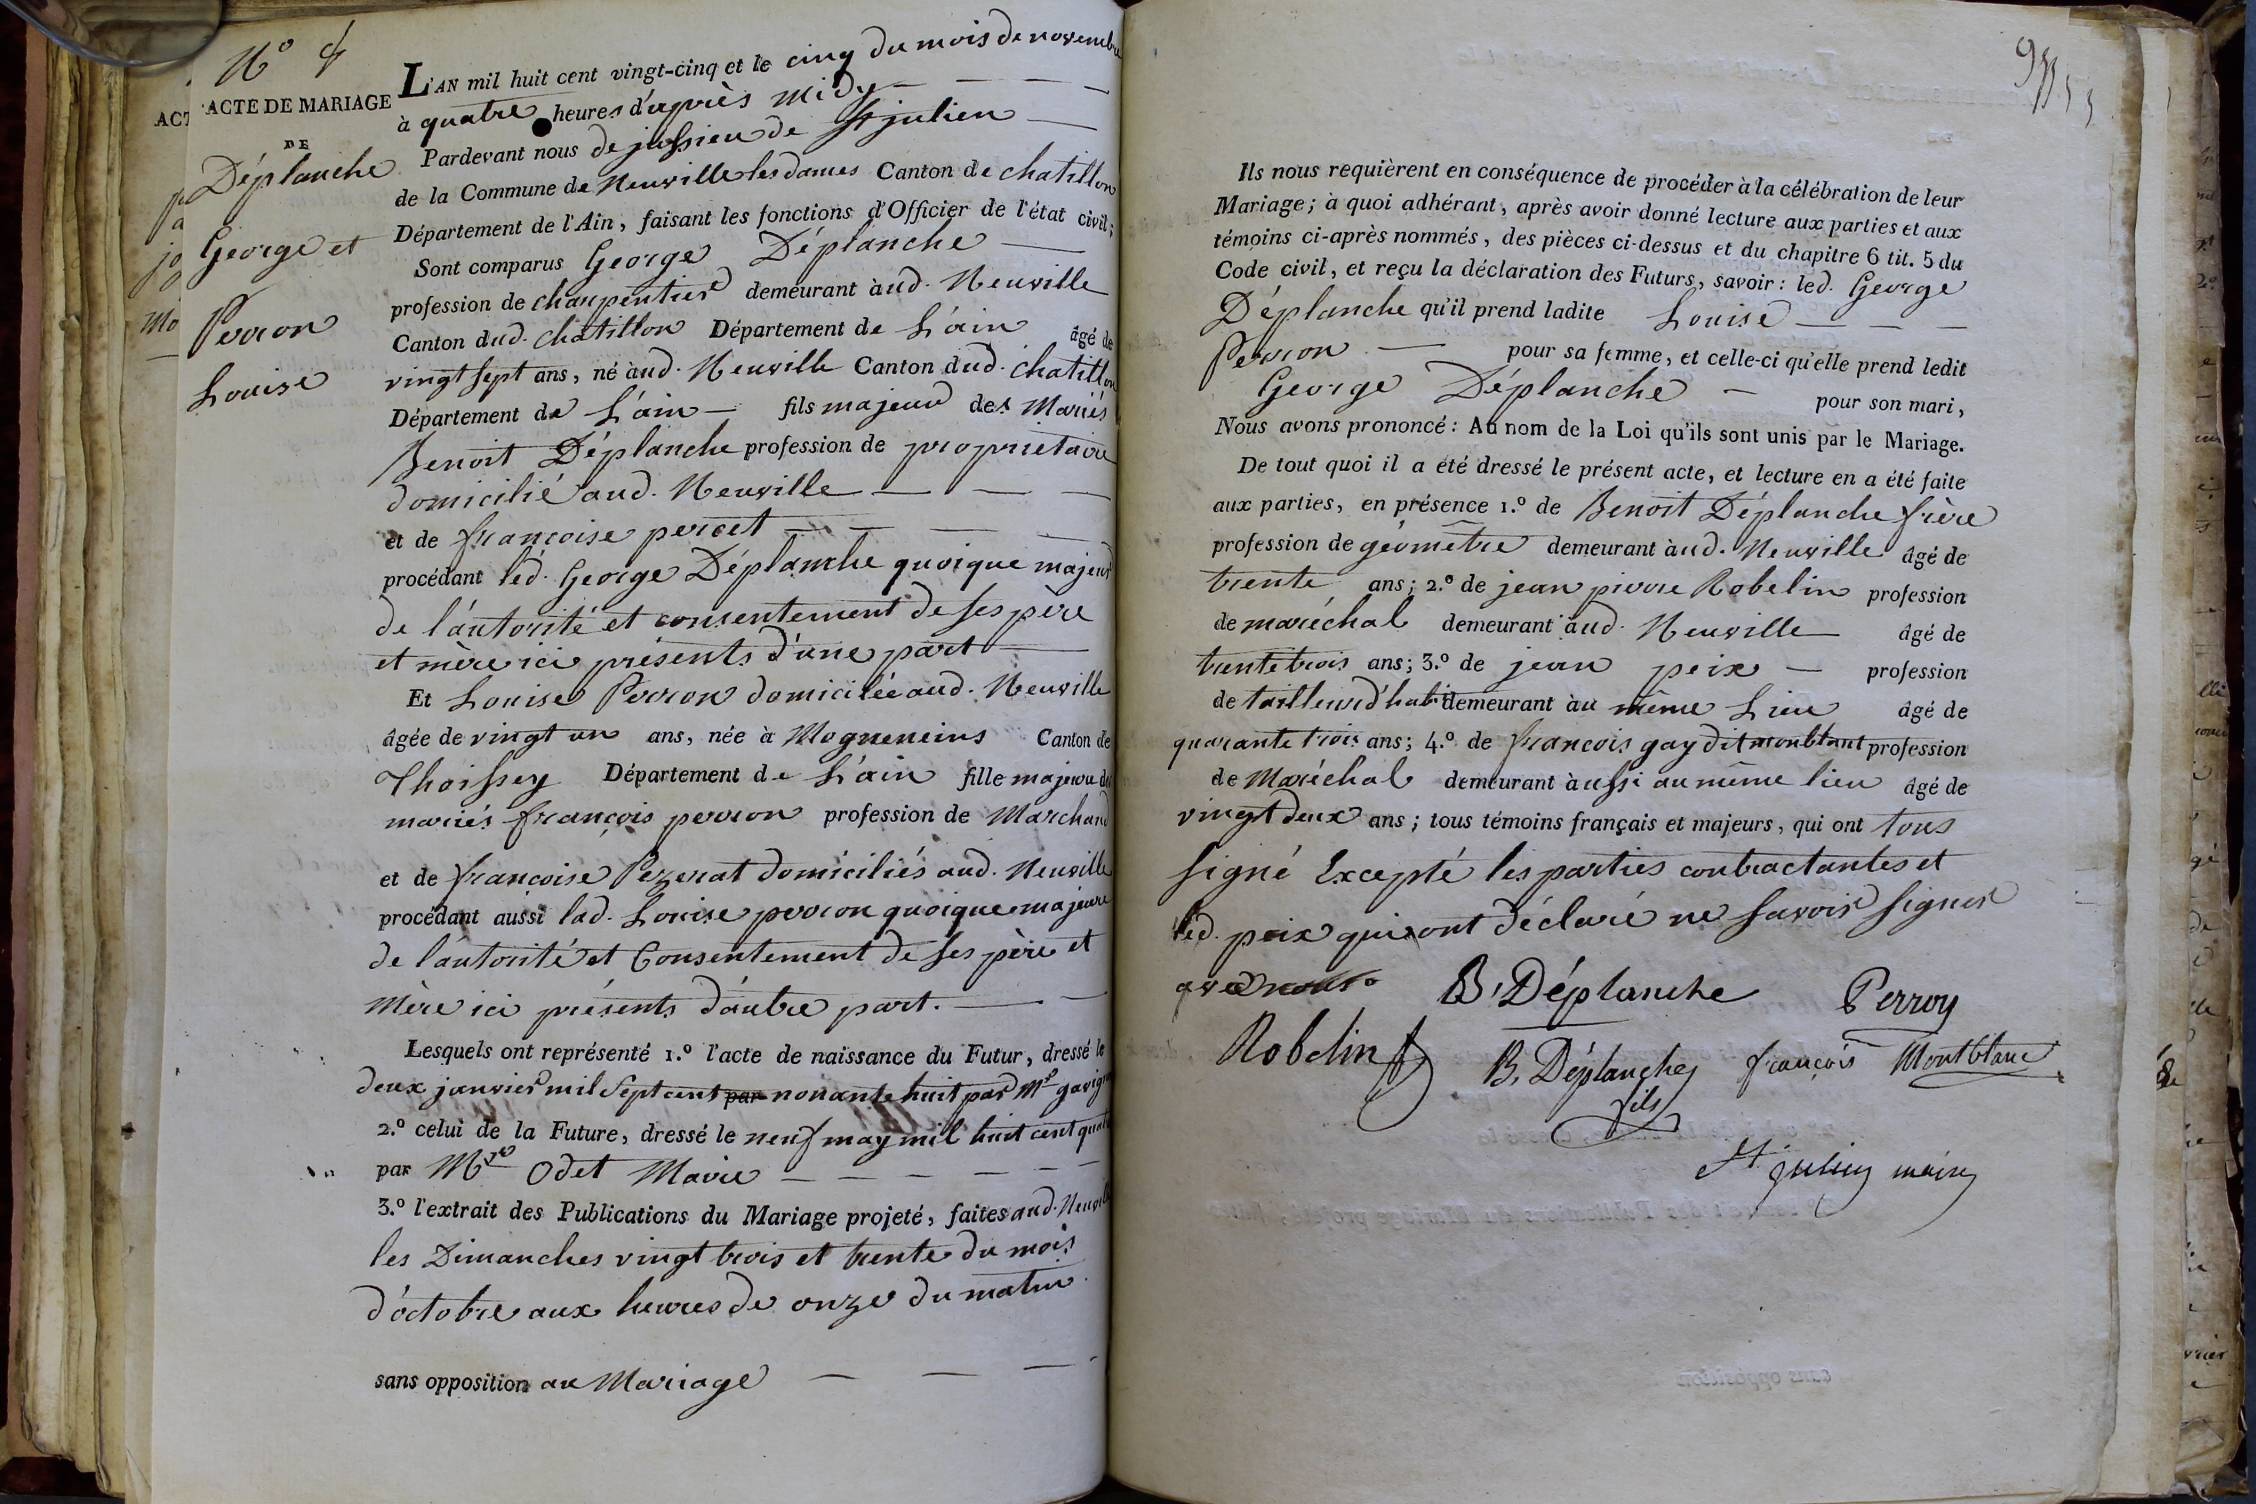 N.º 4
ACTE DE MARIAGE
DE
Déplanche
George et
Perron
Louise
L'AN mil huit cent vingt-cinq et le cinq du mois de novembre
à quatre heures d'après Midy
Pardevant nous de jussieu de St julien
de la Commune de Neuville les dames Canton de chatillon
Département de l'Ain, faisant les fonctions d'Officier de l'état civil;
Sont comparus George Déplanche
profession de charpentier demeurant àud. Neuville
Canton dud. chatillon Département de L'ain âgé de
vingt sept ans, né àud. Neuville Canton dud. chatillon
Département de L'ain fils majeur des Mariés
Benoit Déplanche profession de propriétaire
domicilié aud. Neuville
et de françoise percet
procédant led. George Déplanche quoique majeur
de l'autorité et consentement de ses père
et mère ici présents d'une part
Et Louise Perron domiciliée aud. Neuville
âgée de vingt un ans, née à Mogneneins Canton de
Thoissey Département de L'ain fille majeure des
mariés françois perron profession de Marchand
et de françoise Pezerat domiciliés aud. Neuville
procédant aussi lad. Louise perron quoique majeure
de l'autorité et Consentement de ses père et
Mère ici présents d'autre part.
Lesquels ont représenté 1.º l'acte de naissance du Futur, dressé le
deux janvier mil sept cent par nonante huit par Mr
2.º celui de la Future, dressé le neuf may mil huit cent quatre
par Mre Odet Maire
3.º l'extrait des Publications du Mariage projeté, faites aud. Neuville
les Dimanches vingt trois et trente du mois
d'octobre aux heures de onze du matin
sans opposition au Mariage
Ils nous requièrent en conséquence de procéder à la célébration de leur
Mariage; à quoi adhérant, après avoir donné lecture aux parties et aux
témoins ci-après nommés, des pièces ci-dessus et du chapitre 6 tit. 5 du
Code civil, et reçu la déclaration des Futurs, savoir: led. George
Déplanche qu'il prend ladite Louise
Perron pour sa femme, et celle-ci qu'elle prend ledit
George Déplanche pour son mari,
Nous avons prononcé: Au nom de la Loi qu'ils sont unis par le Mariage.
De tout quoi il a été dressé le présent acte, et lecture en a été faite
aux parties, en présence 1.º de Benoit Déplanche frère
profession de géomètre demeurant àud. Neuville âgé de
trente ans; 2.º de jean pierre Robelin profession
de maréchal demeurant àud. Neuville âgé de
trente trois ans; 3.º de jean peix profession
de tailleur d'habit demeurant àu même Lieu âgé de
quarante trois ans; 4.º de françois gay dit montblant profession
de Maréchal demeurant àussi au même lieu âgé de
vingt deux ans; tous témoins français et majeurs, qui ont tous
signé Excepté les parties contractantes et
led. peix qui ont déclaré ne savoir signer
avec nous
B. Déplanche Perron
Robelin B. Déplanche françois Montblanc
fils
St julien maire